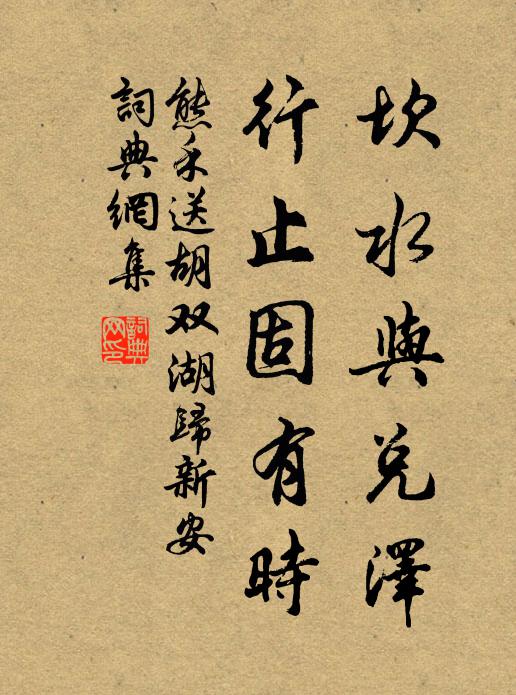 坎水與兑澤
行止固有時
熊禾送胡双湖歸新安
詞典網集
詞典網印